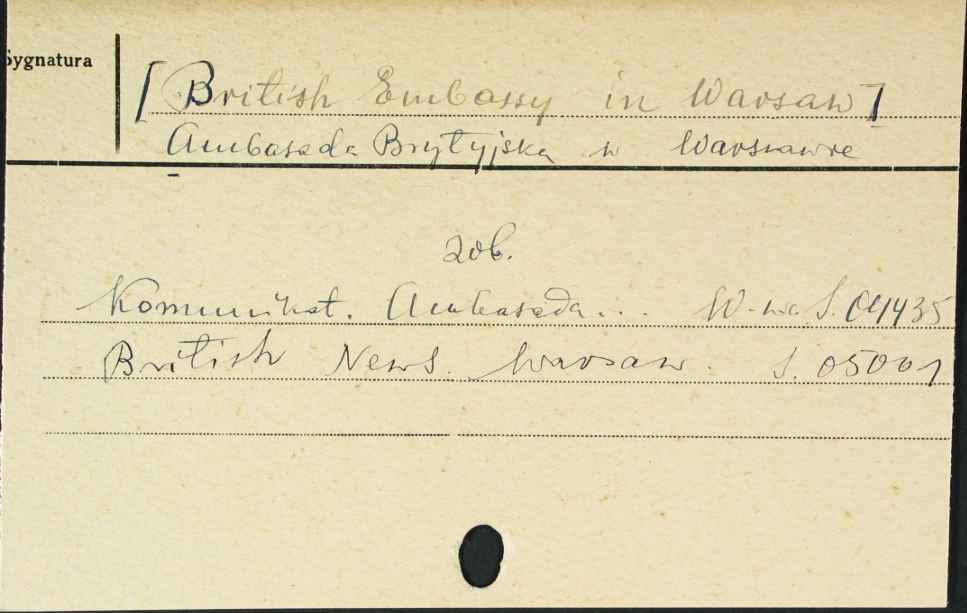 Sygnatura
[British Embassy in Warsaw]
Ambasada Brytyjska w Warszawie
zob.
Komunikat. Ambasada... W-wa. S. 04435
British News. Warsaw. S. 05001